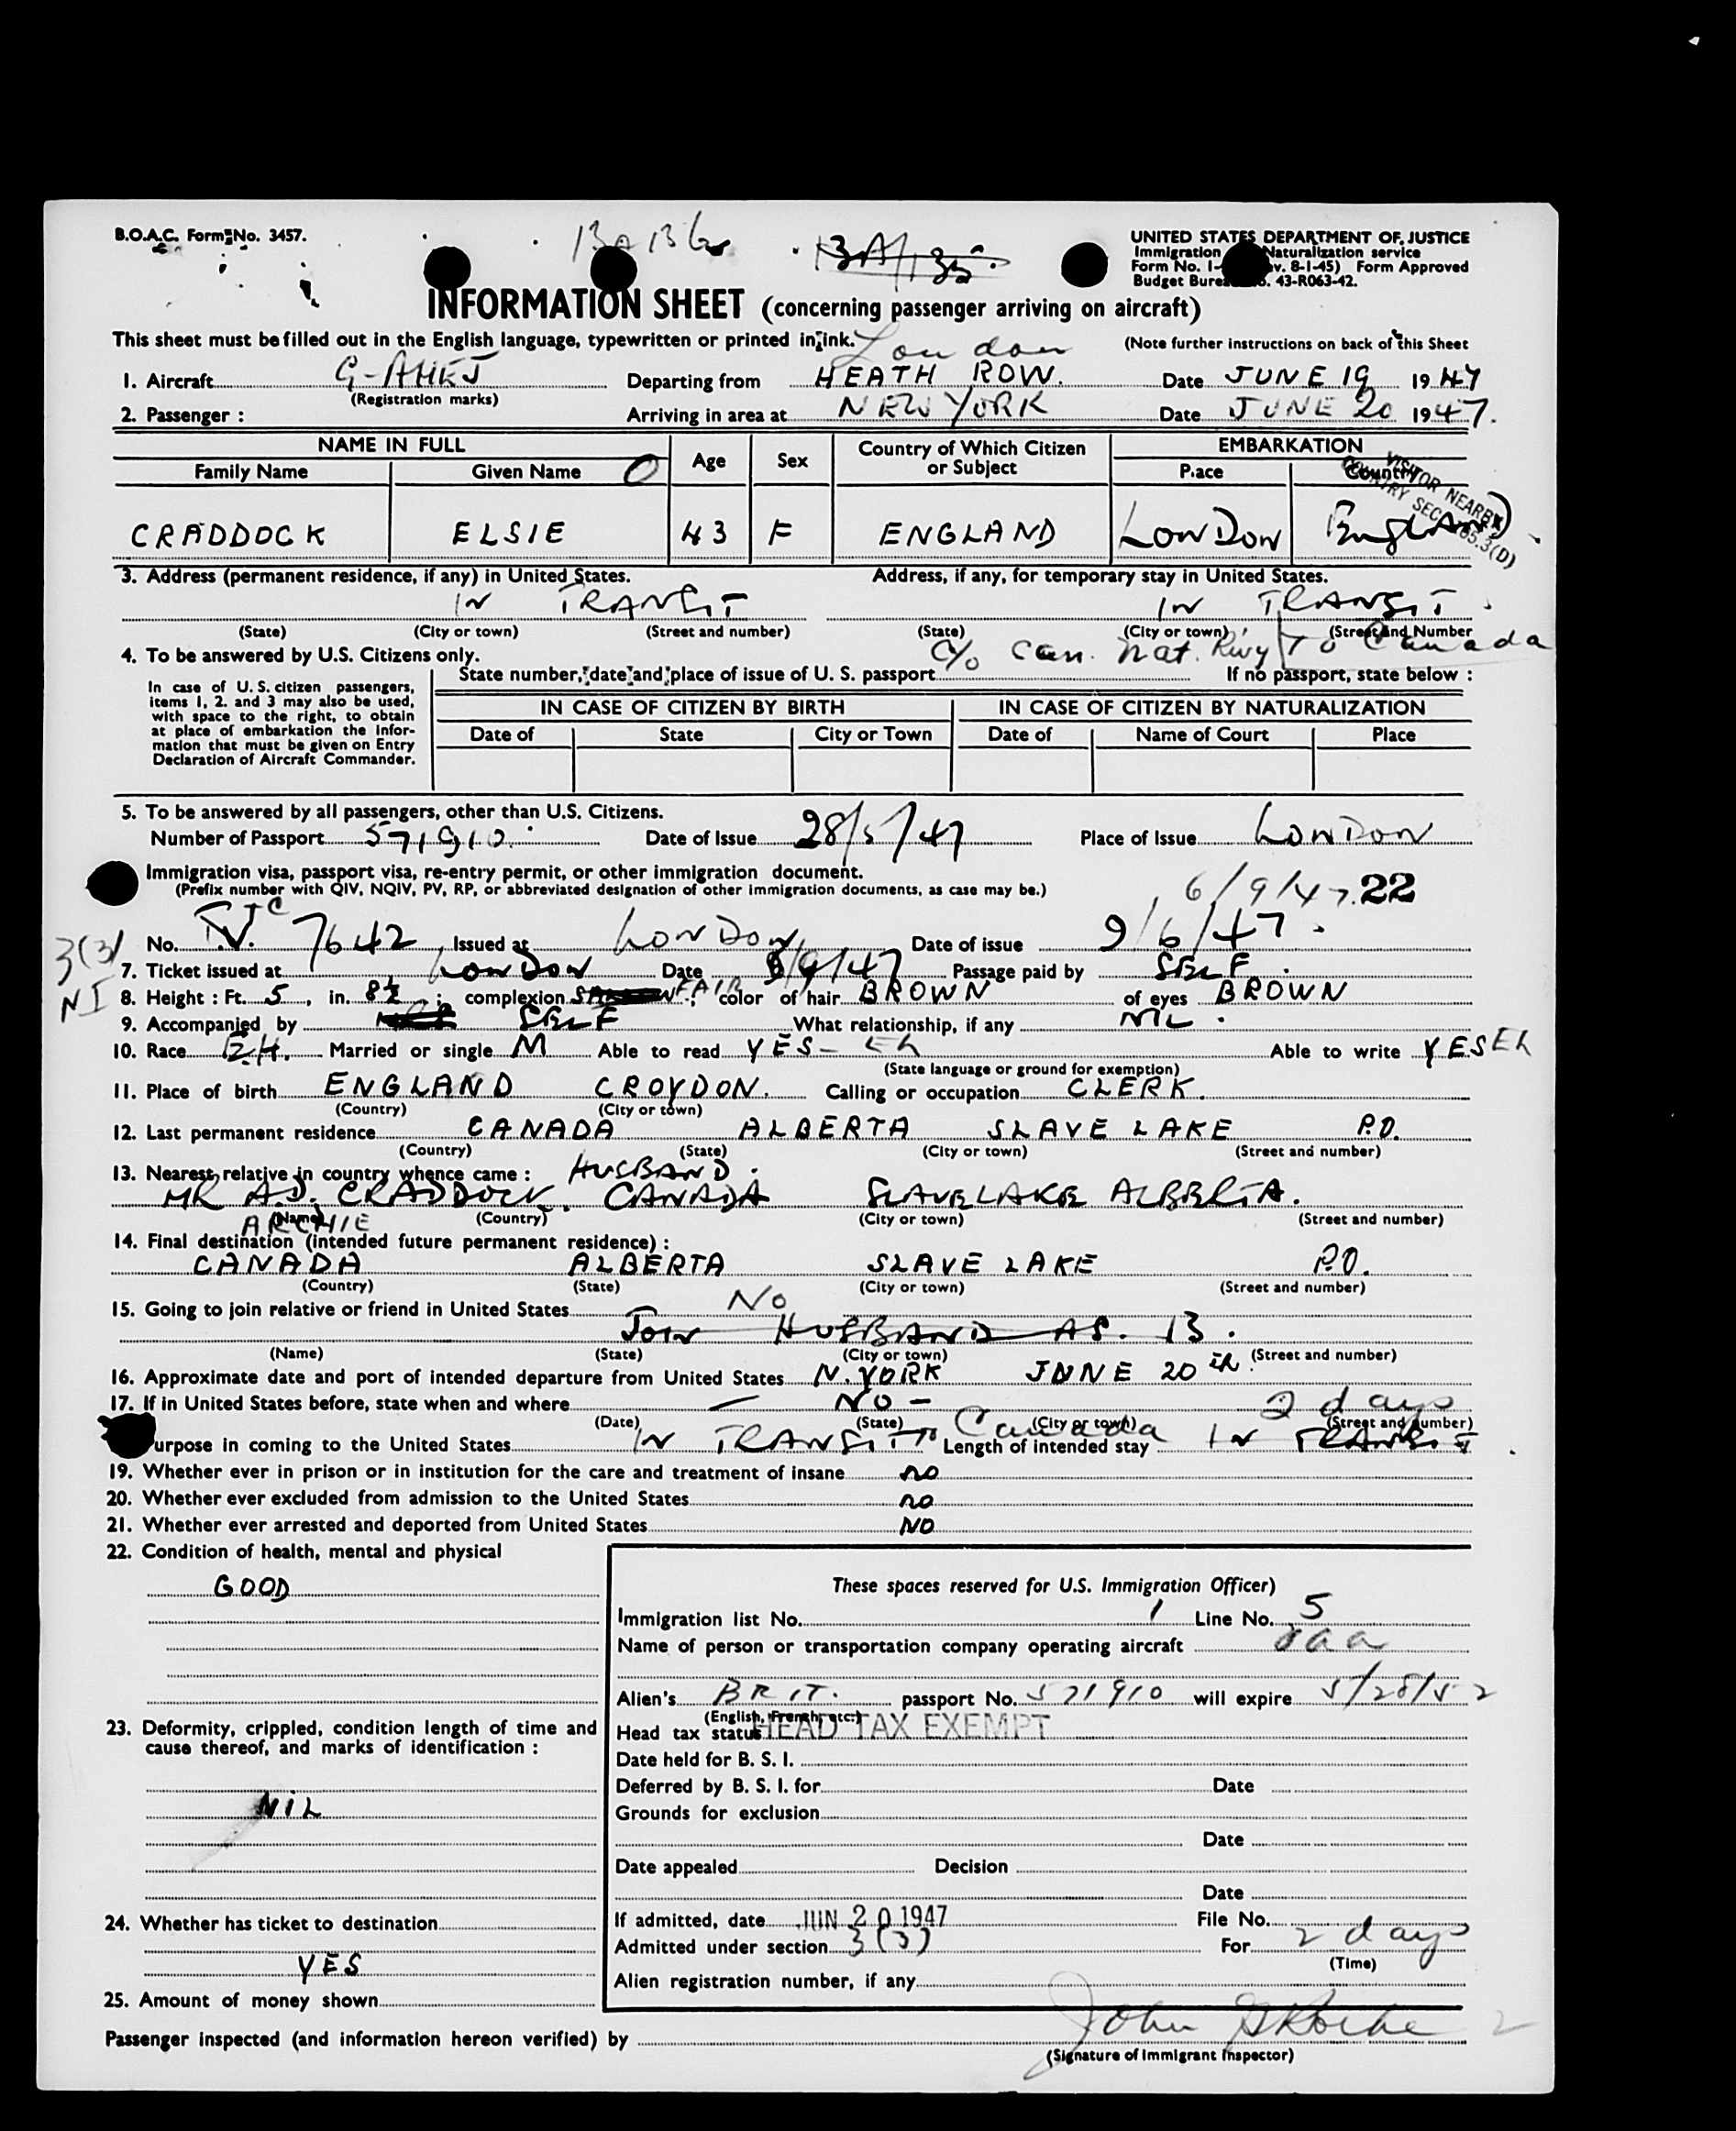 B.O.A.C. Form No. 3457.
BA 136
BA/135
UNITED STATES DEPARTMENT OF JUSTICE
Immigration Naturalization service
Form No. I- v. 8-1-45) Form Approved
Budget Bure o. 43-R063-42.
INFORMATION SHEET (concerning passenger arriving on aircraft)
This sheet must be filled out in the English language, typewritten or printed in ink. (Note further instructions on back of this Sheet
London
1. Aircraft G-AHEJ Departing from HEATH ROW. Date JUNE 19 1947
(Registration marks)
2. Passenger : Arriving in area at NEW YORK Date JUNE 20 1947.
NAME IN FULL Age Sex Country of Which Citizen or Subject EMBARKATION
Family Name Given Name O Place Country
VISITOR NEARBY
COUNTRY SEC. 165.3(D)
CRADDOCK ELSIE 43 F ENGLAND LONDON England
3. Address (permanent residence, if any) in United States. Address, if any, for temporary stay in United States.
IN TRANSIT IN TRANSIT
(State) (City or town) (Street and number) (State) (City or town) (Street and Number
c/o Can. Nat. Rwy To Canada
4. To be answered by U.S. Citizens only.
State number, date and place of issue of U. S. passport If no passport, state below :
In case of U. S. citizen passengers,
items 1, 2. and 3 may also be used,
with space to the right, to obtain
at place of embarkation the Infor-
mation that must be given on Entry
Declaration of Aircraft Commander.
IN CASE OF CITIZEN BY BIRTH IN CASE OF CITIZEN BY NATURALIZATION
Date of State City or Town Date of Name of Court Place
5. To be answered by all passengers, other than U.S. Citizens.
Number of Passport 571910. Date of Issue 28/5/47 Place of Issue LONDON
Immigration visa, passport visa, re-entry permit, or other immigration document.
(Prefix number with QIV, NQIV, PV, RP, or abbreviated designation of other immigration documents, as case may be.)
6/9/47. 22
3(3)
NI
No. 7642 Issued at LONDON Date of issue 9/6/47.
7. Ticket issued at LONDON Date 6/9/47 Passage paid by SELF.
8. Height : Ft. 5, in. 8½ ; complexion FAIR ; color of hair BROWN of eyes BROWN
9. Accompanied by SELF What relationship, if any NIL.
10. Race E.H. Married or single M Able to read YES - Eh Able to write YES Eh
(State language or ground for exemption)
11. Place of birth ENGLAND CROYDON. Calling or occupation CLERK.
(Country) (City or town)
12. Last permanent residence CANADA ALBERTA SLAVE LAKE P.O.
(Country) (State) (City or town) (Street and number)
13. Nearest relative in country whence came : HUSBAND.
MR A.D. CRADDOCK. CANADA SLAVE LAKE ALBERTA.
(Name) (Country) (City or town) (Street and number)
ARCHIE
14. Final destination (intended future permanent residence) :
CANADA ALBERTA SLAVE LAKE P.O.
(Country) (State) (City or town) (Street and number)
15. Going to join relative or friend in United States No
JOIN HUSBAND AS. 13.
(Name) (State) (City or town) (Street and number)
16. Approximate date and port of intended departure from United States N. YORK JUNE 20th.
17. If in United States before, state when and where — NO - 2 days
(Date) (State) (City or town) (Street and number)
urpose in coming to the United States IN TRANSIT TO Canada Length of intended stay IN TRANSIT
19. Whether ever in prison or in institution for the care and treatment of insane no
20. Whether ever excluded from admission to the United States no
21. Whether ever arrested and deported from United States NO
22. Condition of health, mental and physical
GOOD
These spaces reserved for U.S. Immigration Officer)
Immigration list No. 1 Line No. 5
Name of person or transportation company operating aircraft oaa
Alien's BRIT. passport No. 571910 will expire 5/28/52
(English, French, etc.)
23. Deformity, crippled, condition length of time and
cause thereof, and marks of identification :
NIL
Head tax status HEAD TAX EXEMPT
Date held for B. S. I.
Deferred by B. S. I. for Date
Grounds for exclusion
Date
Date appealed Decision
Date
24. Whether has ticket to destination
YES
If admitted, date JUN 20 1947 File No.
Admitted under section 3(3) For 2 days
(Time)
Alien registration number, if any
25. Amount of money shown
Passenger inspected (and information hereon verified) by John
(Signature of Immigrant Inspector)